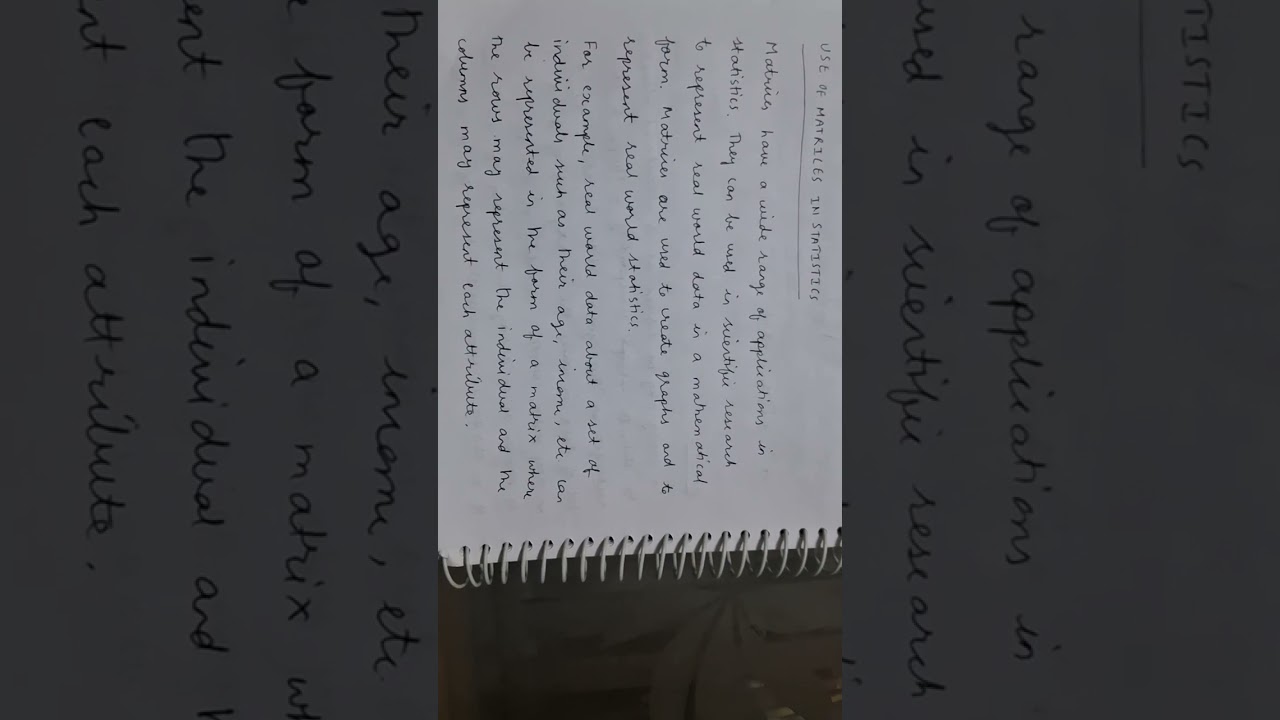 USE OF MATRICES IN STATISTICS
Matrices have a wide range of applications in
statistics. They can be used in scientific research
to represent real world data in a mathematical
form. Matrices are used to create graphs and to
represent real world statistics.
For example, real world data about a set of
individuals such as their age, income, etc can
be represented in the form of a matrix where
the rows may represent the individual and the
columns may represent each attribute.